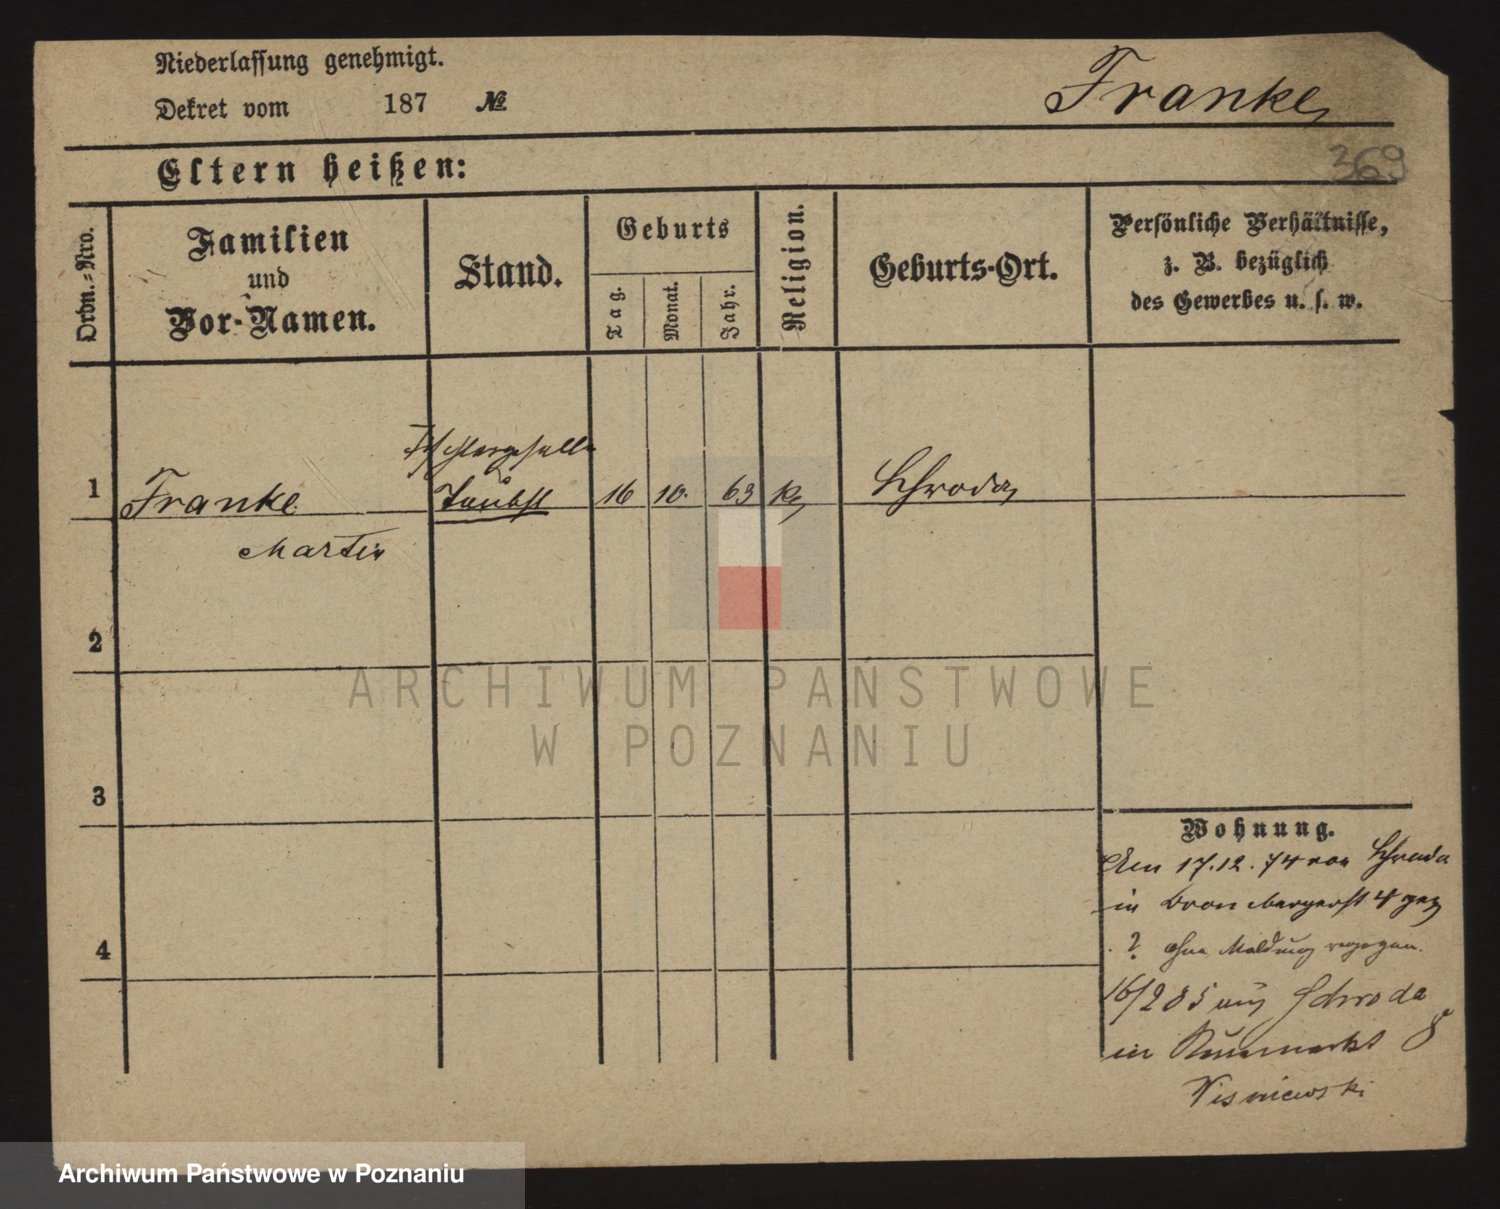 Niederlassung genehmigt.
Dekret vom 187 №
Franke
369
Eltern heißen:
Ordn.-Nro.
Familien
und
Vor-Namen.
Stand.
Geburts
Tag.
Monat.
Jahr.
Religion.
Geburts-Ort.
Persönliche Verhältnisse,
z. B. bezüglich
des Gewerbes u. s. w.
Tischlergeselle
1 Franke Taubst 16 10. 63 k Schroda
Martin
2
3
4
Wohnung.
Am 17.12.74 von Schroda
in Brombergerst 4 gez
? ohne Meldung
16/2 85 aus Schroda
in Neuemarkt 8
Wisniewski
ARCHIWUM PAŃSTWOWE
W POZNANIU
Archiwum Państwowe w Poznaniu